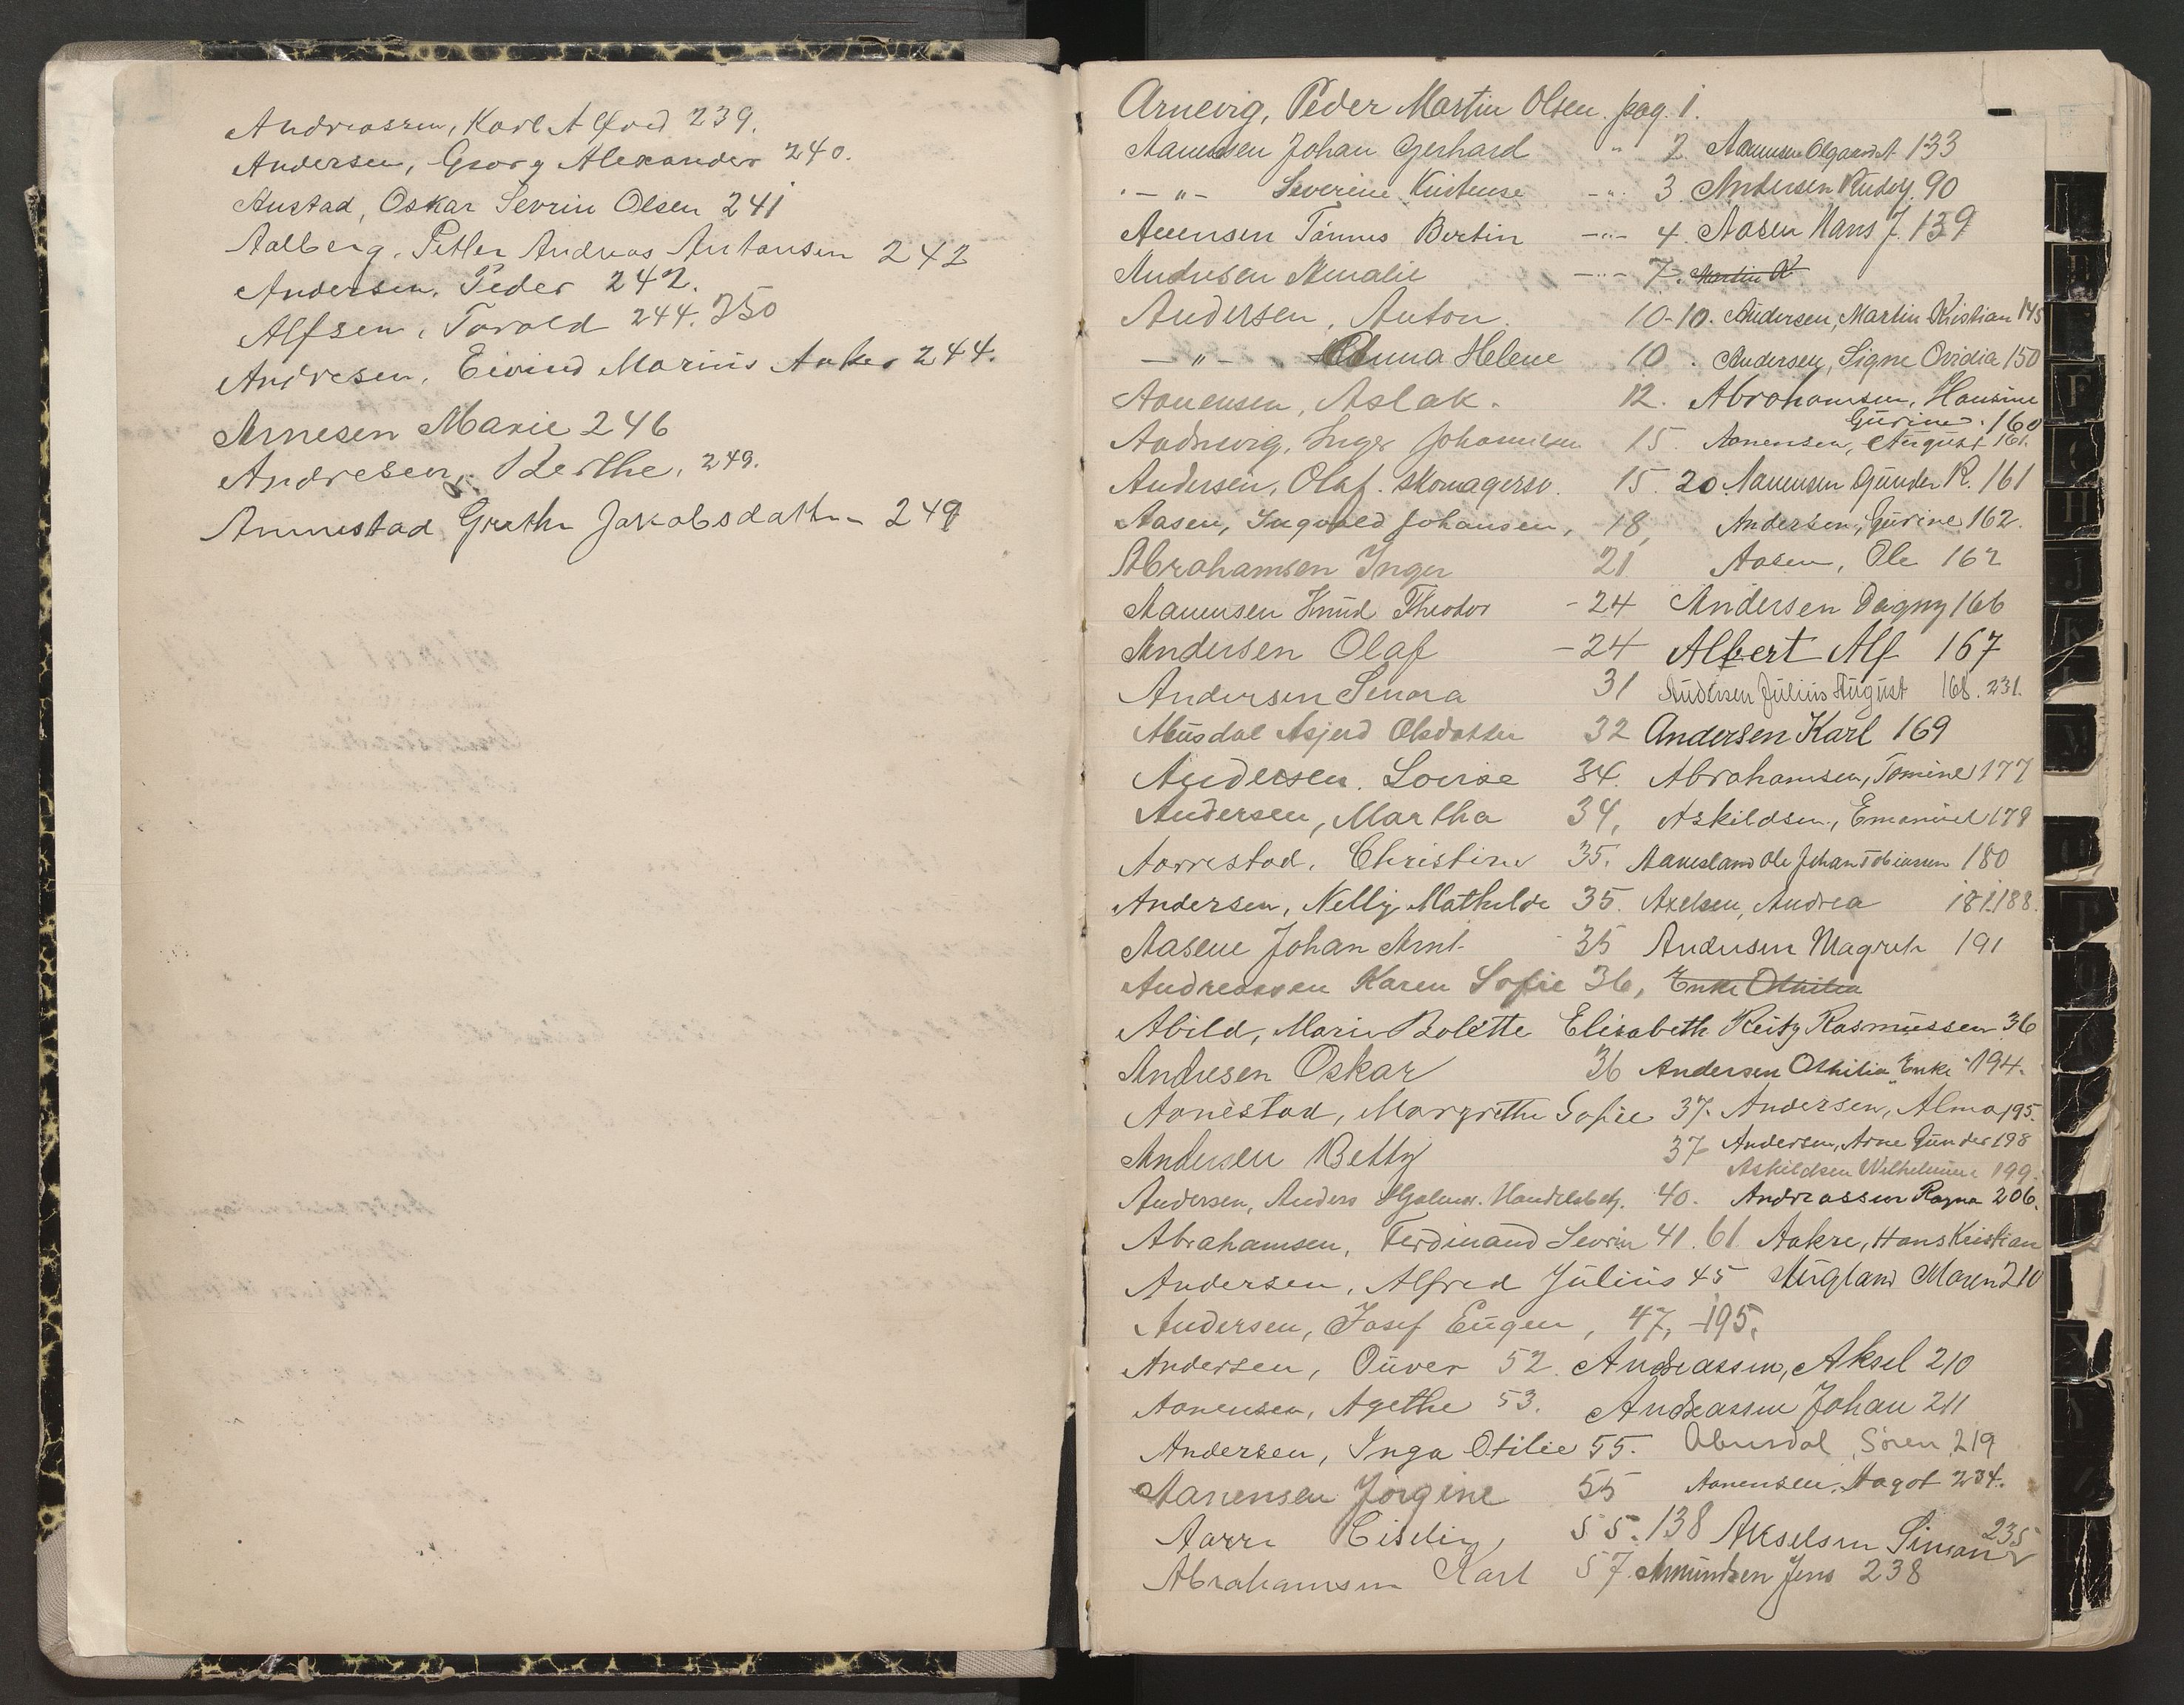 Andreassen, Karl Alfred 239.
Andersen, Georg Alexander 240.
Austad, Oskar Sevrin Olsen 241
Aalberg, Petter Andreas Antonsen 242
Andersen, Peder 242.
Alfsen, Torald 244. 250
Andresen, Eivind Marius Anker 244.
Arnesen Marie 246
Andresen, Berthe, 249.
Annestad Grethe Jakobsdatter 249
Arnevig, Peder Martin Olsen. pag. 1.
Aanensen Johan Gerhard " 2 Aanensen Olgard A 133
-"- Severine Kristense -"- 3. Andersen Rudolf. 90
Aanensen Tønnes Bertin -"- 4. Aasen Hans J. 139
Andresen Amalie -"- 7. Martin K
Andersen, Anton. 10-10. Andersen, Martin Kristian 145
-"- Anna Helene 10. Andersen, Signe Ovidia 150
Aanensen, Aslak. 12. Abrahamsen, Hansine
Gurine. 160
Aadnevig, Inger Johannesen 15. Aanensen, August 161.
Andersen, Olaf. skomagersv. 15. 20. Aanensen Gunder R. 161
Aasen, Ingvald Johansen, 18, Andersen, Gurine 162.
Abrahamsen Inger 21 Aasen, Ole 162
Aanensen Knud Theodor - 24 Andersen Dagny 166
Andersen Olaf - 24 Albert Alf 167
Andersen Senora 31 Andersen Julius August 168. 231.
Aasjerd Olsdatter 32 Andersen Karl 169
Andersen. Lovise 34. Abrahamsen, Tomine 177
Andersen, Martha 34, Askildsen, Emanuel 179
Aarrestad, Christine 35. Aanesland Ole Johan Tobiassen 180
Andersen, Nelly Mathilde 35. Axelsen, Andrea 181.188.
Aasene Johan Arnt 35 Andersen Magrete 191
Andreassen Karen Sofie 36, Enke Othilia
Abild, Marie Bolette Elisabeth Reitz Rasmussen 36
Andresen Oskar 36 Andersen Othilia "Enke" 194.
Aanestad, Margrethe Sofie 37. Andersen, Alma 195.
Andersen Betty 37 Andersen, Arne Gunder 198
Askildsen Wilhelmine 199.
Andersen, Anders Hjalmar. Handelsbetj. 40. Andreassen Ragna 206.
Abrahamsen, Ferdinand Sevrin 41. 61. Aakre, Hans Kristian
Andersen, Alfred Julius 45 Augland Maren 210
Andersen, Josef Eugen, 47, -195,
Andersen, Ouver 52. Andreassen, Aksel 210
Aanensen, Agethe 53. Andreassen Johan 211
Andersen, Inga Otilie 55. Abusdal, Sören, 219
Aanensen Jörgine 55 Aanensen, Aagot 234.
Aarre Eiselin, 55. 138 Akselsen Simon 235
Abrahamsen Karl 57. Amundsen Jens 238